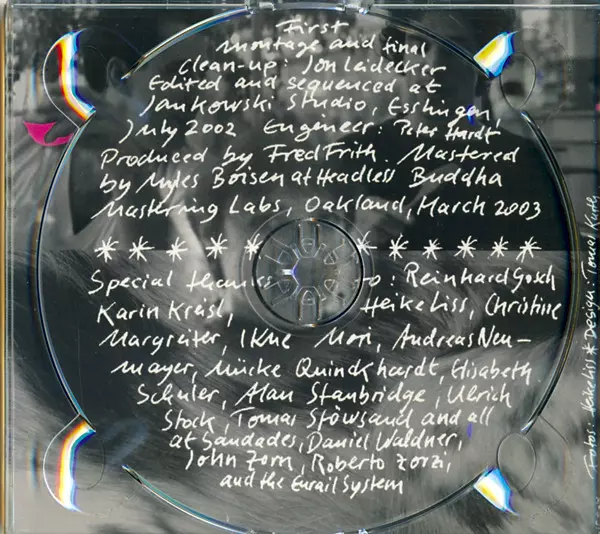 First
montage and final
clean-up: Jon Leidecker
Edited and sequenced at
Jankowski Studio, Esslingen,
July 2002 Engineer: Peter Hardt
Produced by Fred Frith. Mastered
by Myles Boisen at Headless Buddha
Mastering Labs, Oakland, March 2003
* * * * * * * * * * *
Special thanks to: Reinhard Gosch
Karin Kreisl, Heike Liss, Christine
Margreiter, Ikue Mori, Andreas Neu-
mayer, Mücke Quinckhardt, Elisabeth
Schuler, Alan Stanbridge, Ulrich
Stock, Tomas Stöwsand and all
at Saudades, Daniel Waldner,
John Zorn, Roberto Zorzi,
and the Eurail System
Fotos: Heike Liss * Design: Tomas Kurth